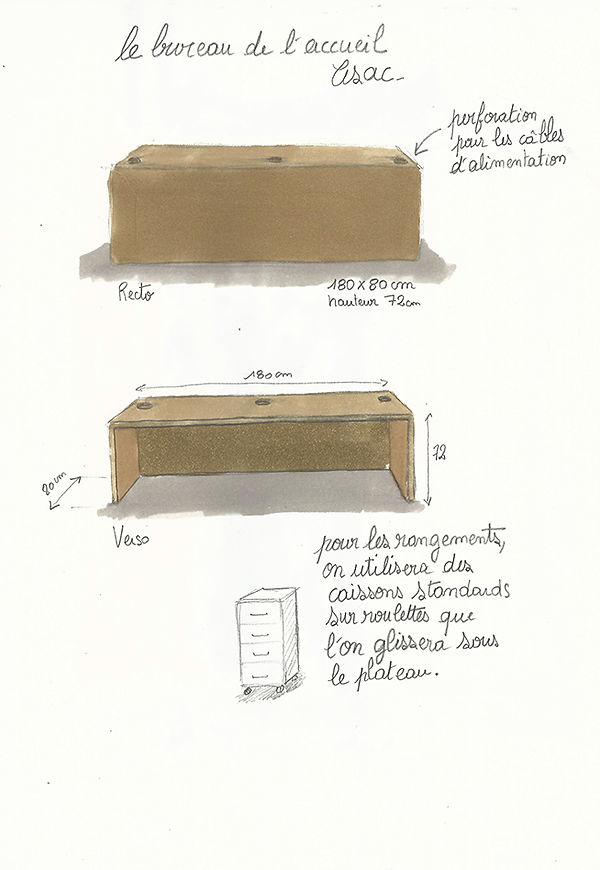 le bureau de l'accueil
Cisac-
perforation
pour les câbles
d'alimentation
Recto
180 x 80 cm
hauteur 72cm
180 cm
72
80 cm
Verso
pour les rangements,
on utilisera des
caissons standards
sur roulettes que
l'on glissera sous
le plateau.